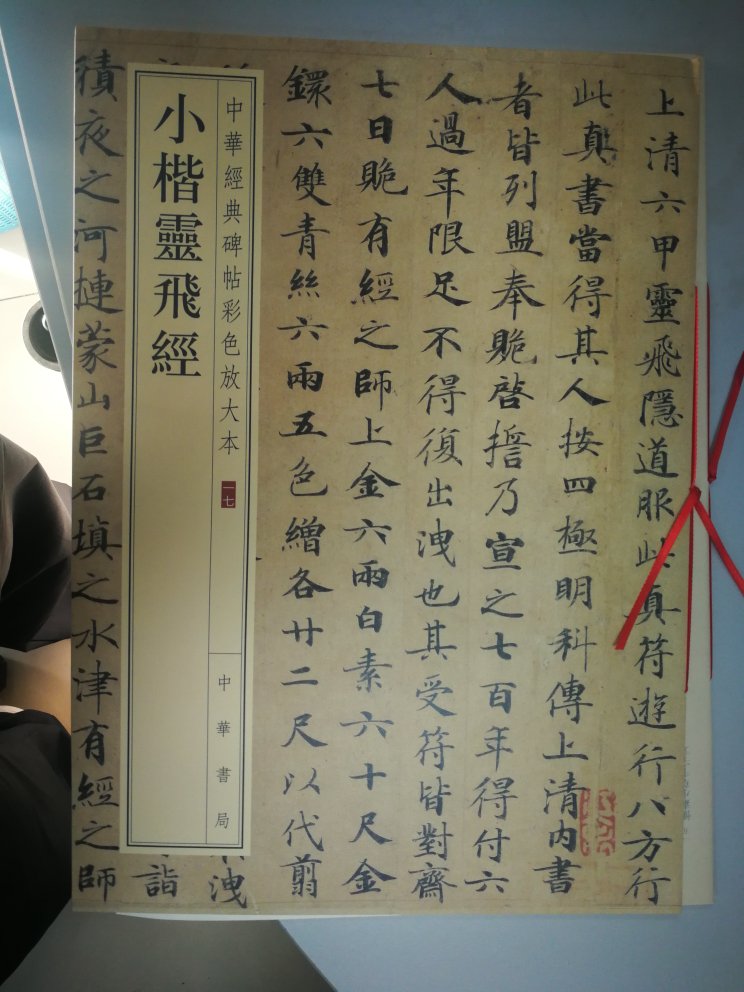 上清六甲靈飛隱道服此真符遊行八方行
此真書當得其人按四極明科傳上清內書
者皆列盟奉贍啓擔乃宣之七百年得付六
人過年限足不得復出洩也其受符皆對齋
七日贍有經之師上金六兩白素六十尺金
鐶六雙青絲六兩五色繒各廿二尺以代翦
洩
詣
積夜之河摙蒙山巨石塡之水津有經之師
中華經典碑帖彩色放大本
一七
小楷靈飛經
中華書局